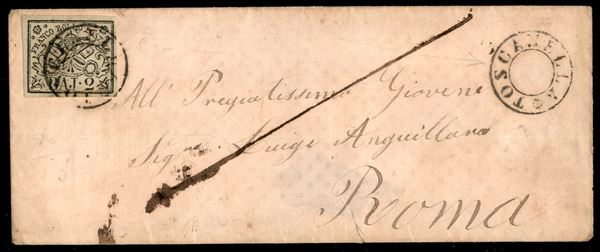 FRANCO BOLLO
BAJ·2
TOSCANELLA
All' Pregiatissimo Giovene
Sigre Luigi Anguillara
Roma